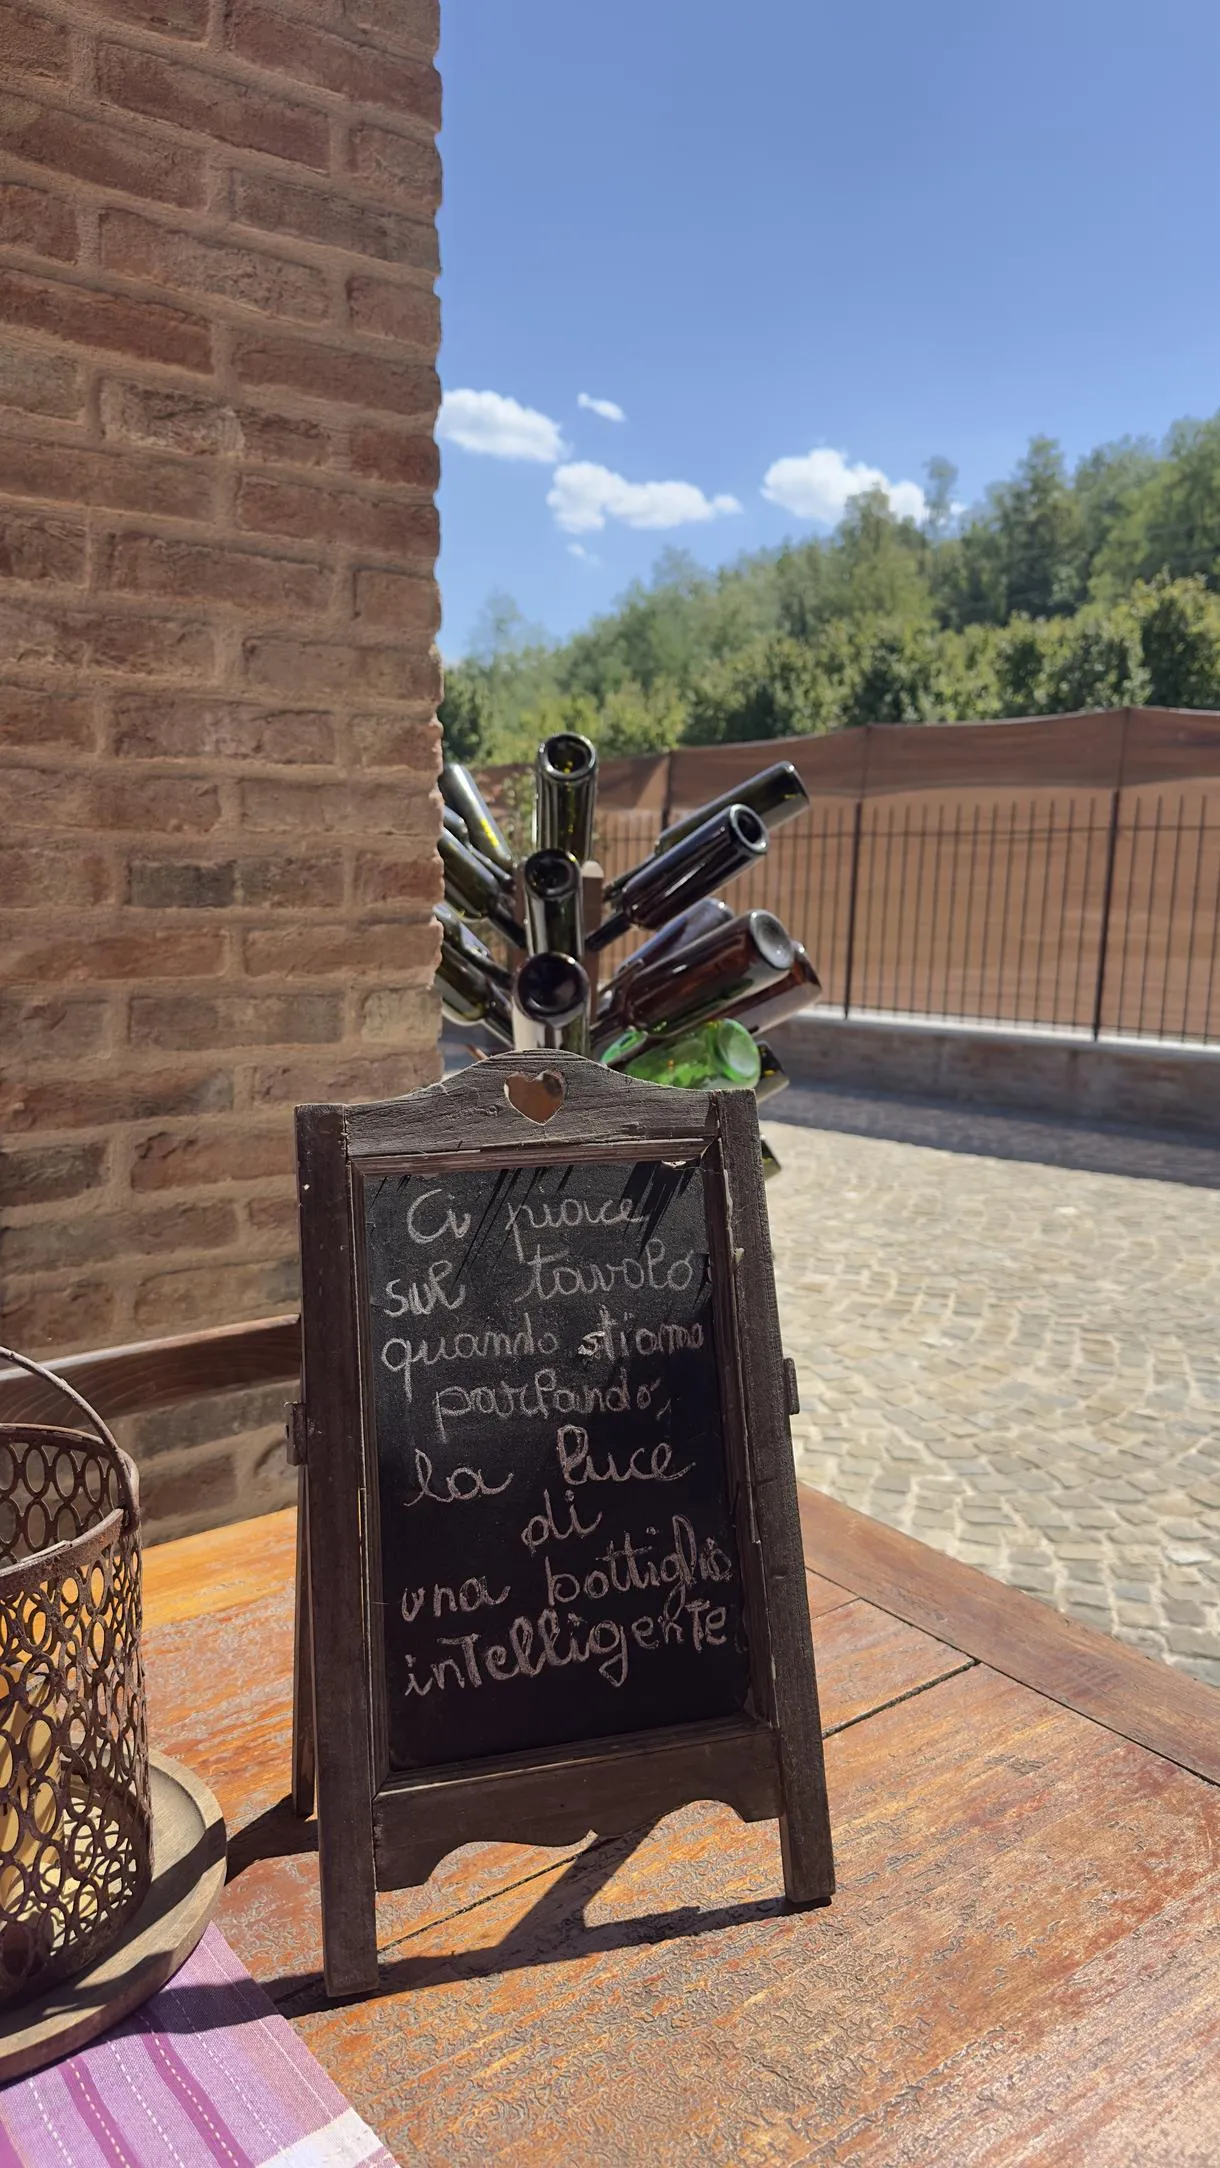 Ci piace
sul tavolo
quando stiamo
parlando,
la luce
di
una bottiglia
intelligente